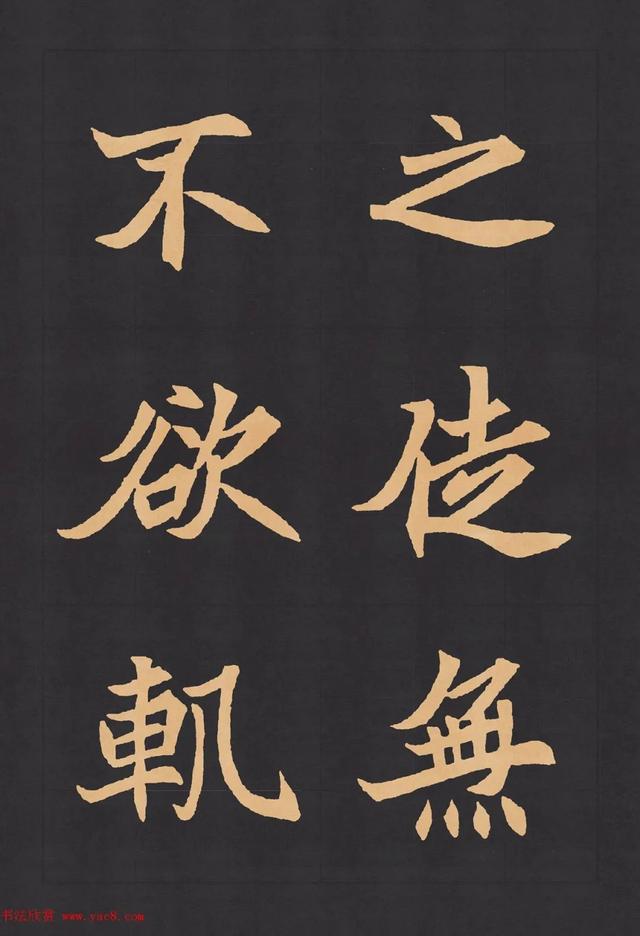 之徒無
不欲軏
书法欣赏 www.yac8.com